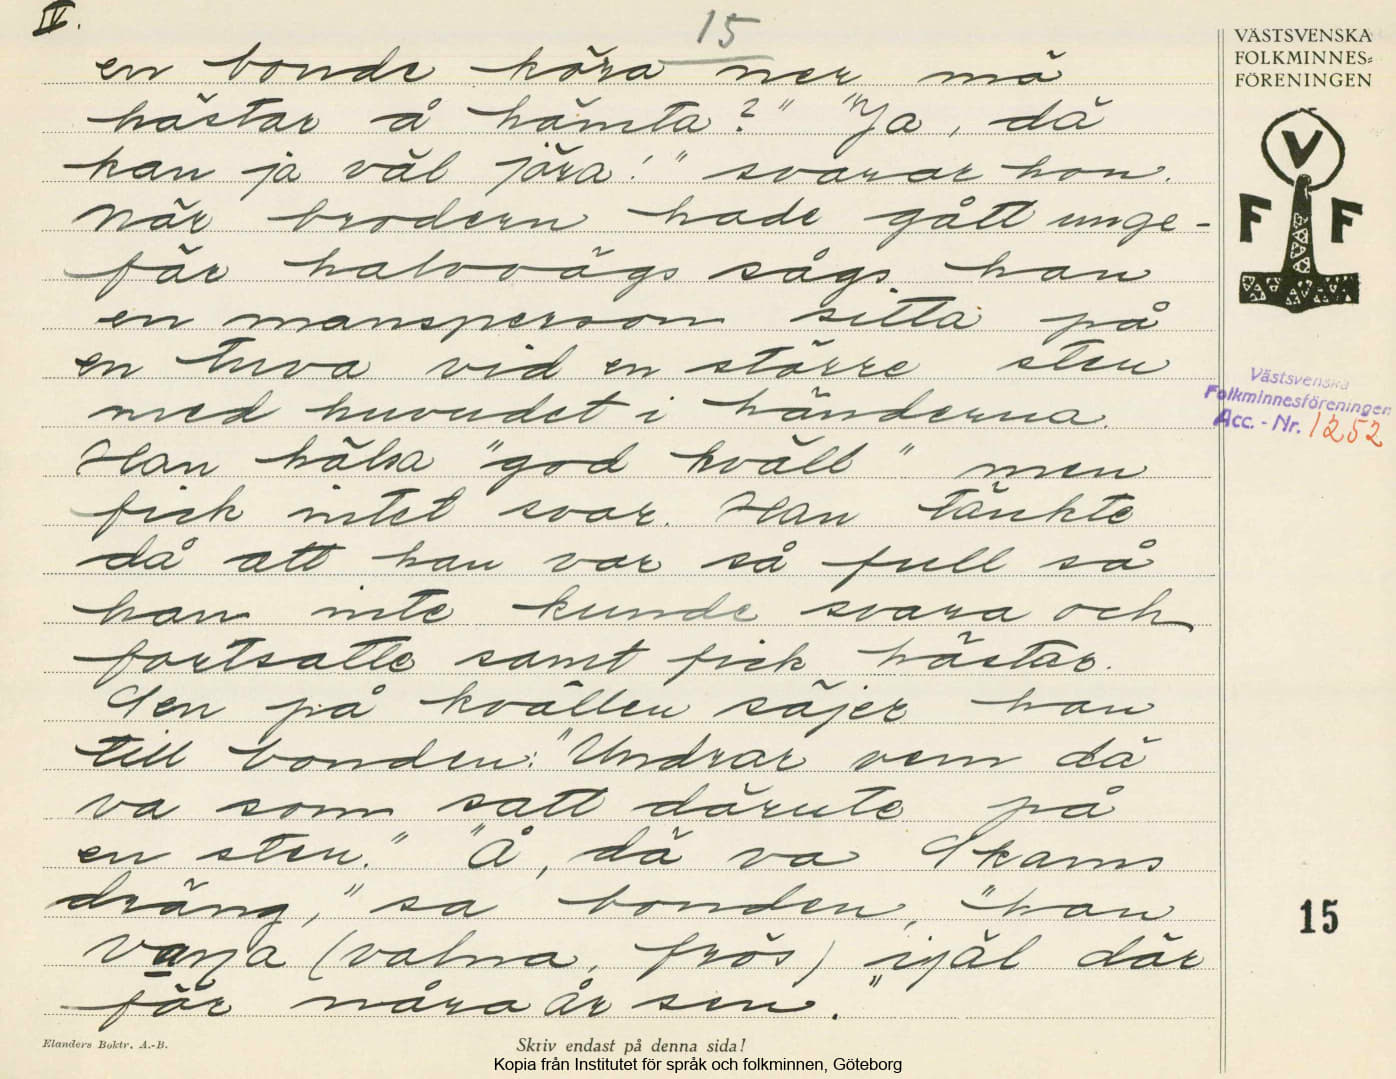 IV.
15
en bonde köra ner mä
hästar å hämta?" "Ja, dä
kan ja väl jöra!" svarar hon.
När brodern hade gått unge-
fär halvvägs sågs han
en mansperson sitta på
en tuva vid en större sten
med huvudet i händerna.
Han hälsa "god kväll" men
fick intet svar. Han tänkte
då att han var så full så
han inte kunde svara och
fortsatte samt fick hästar.
Sen på kvällen säjer han
till bonden: "Undrar vem dä
va som satt därute på
en sten." "Å, dä va Skams
dräng," sa bonden, "han
(valna, frös) ijäl där
för nåra år sen."
VÄSTSVENSKA
FOLKMINNES-
FÖRENINGEN
V
F F
Västsvenska
Folkminnesföreningen
Acc. - Nr. 1252
15
Elanders Boktr. A.-B.
Skriv endast på denna sida!
Kopia från Institutet för språk och folkminnen, Göteborg